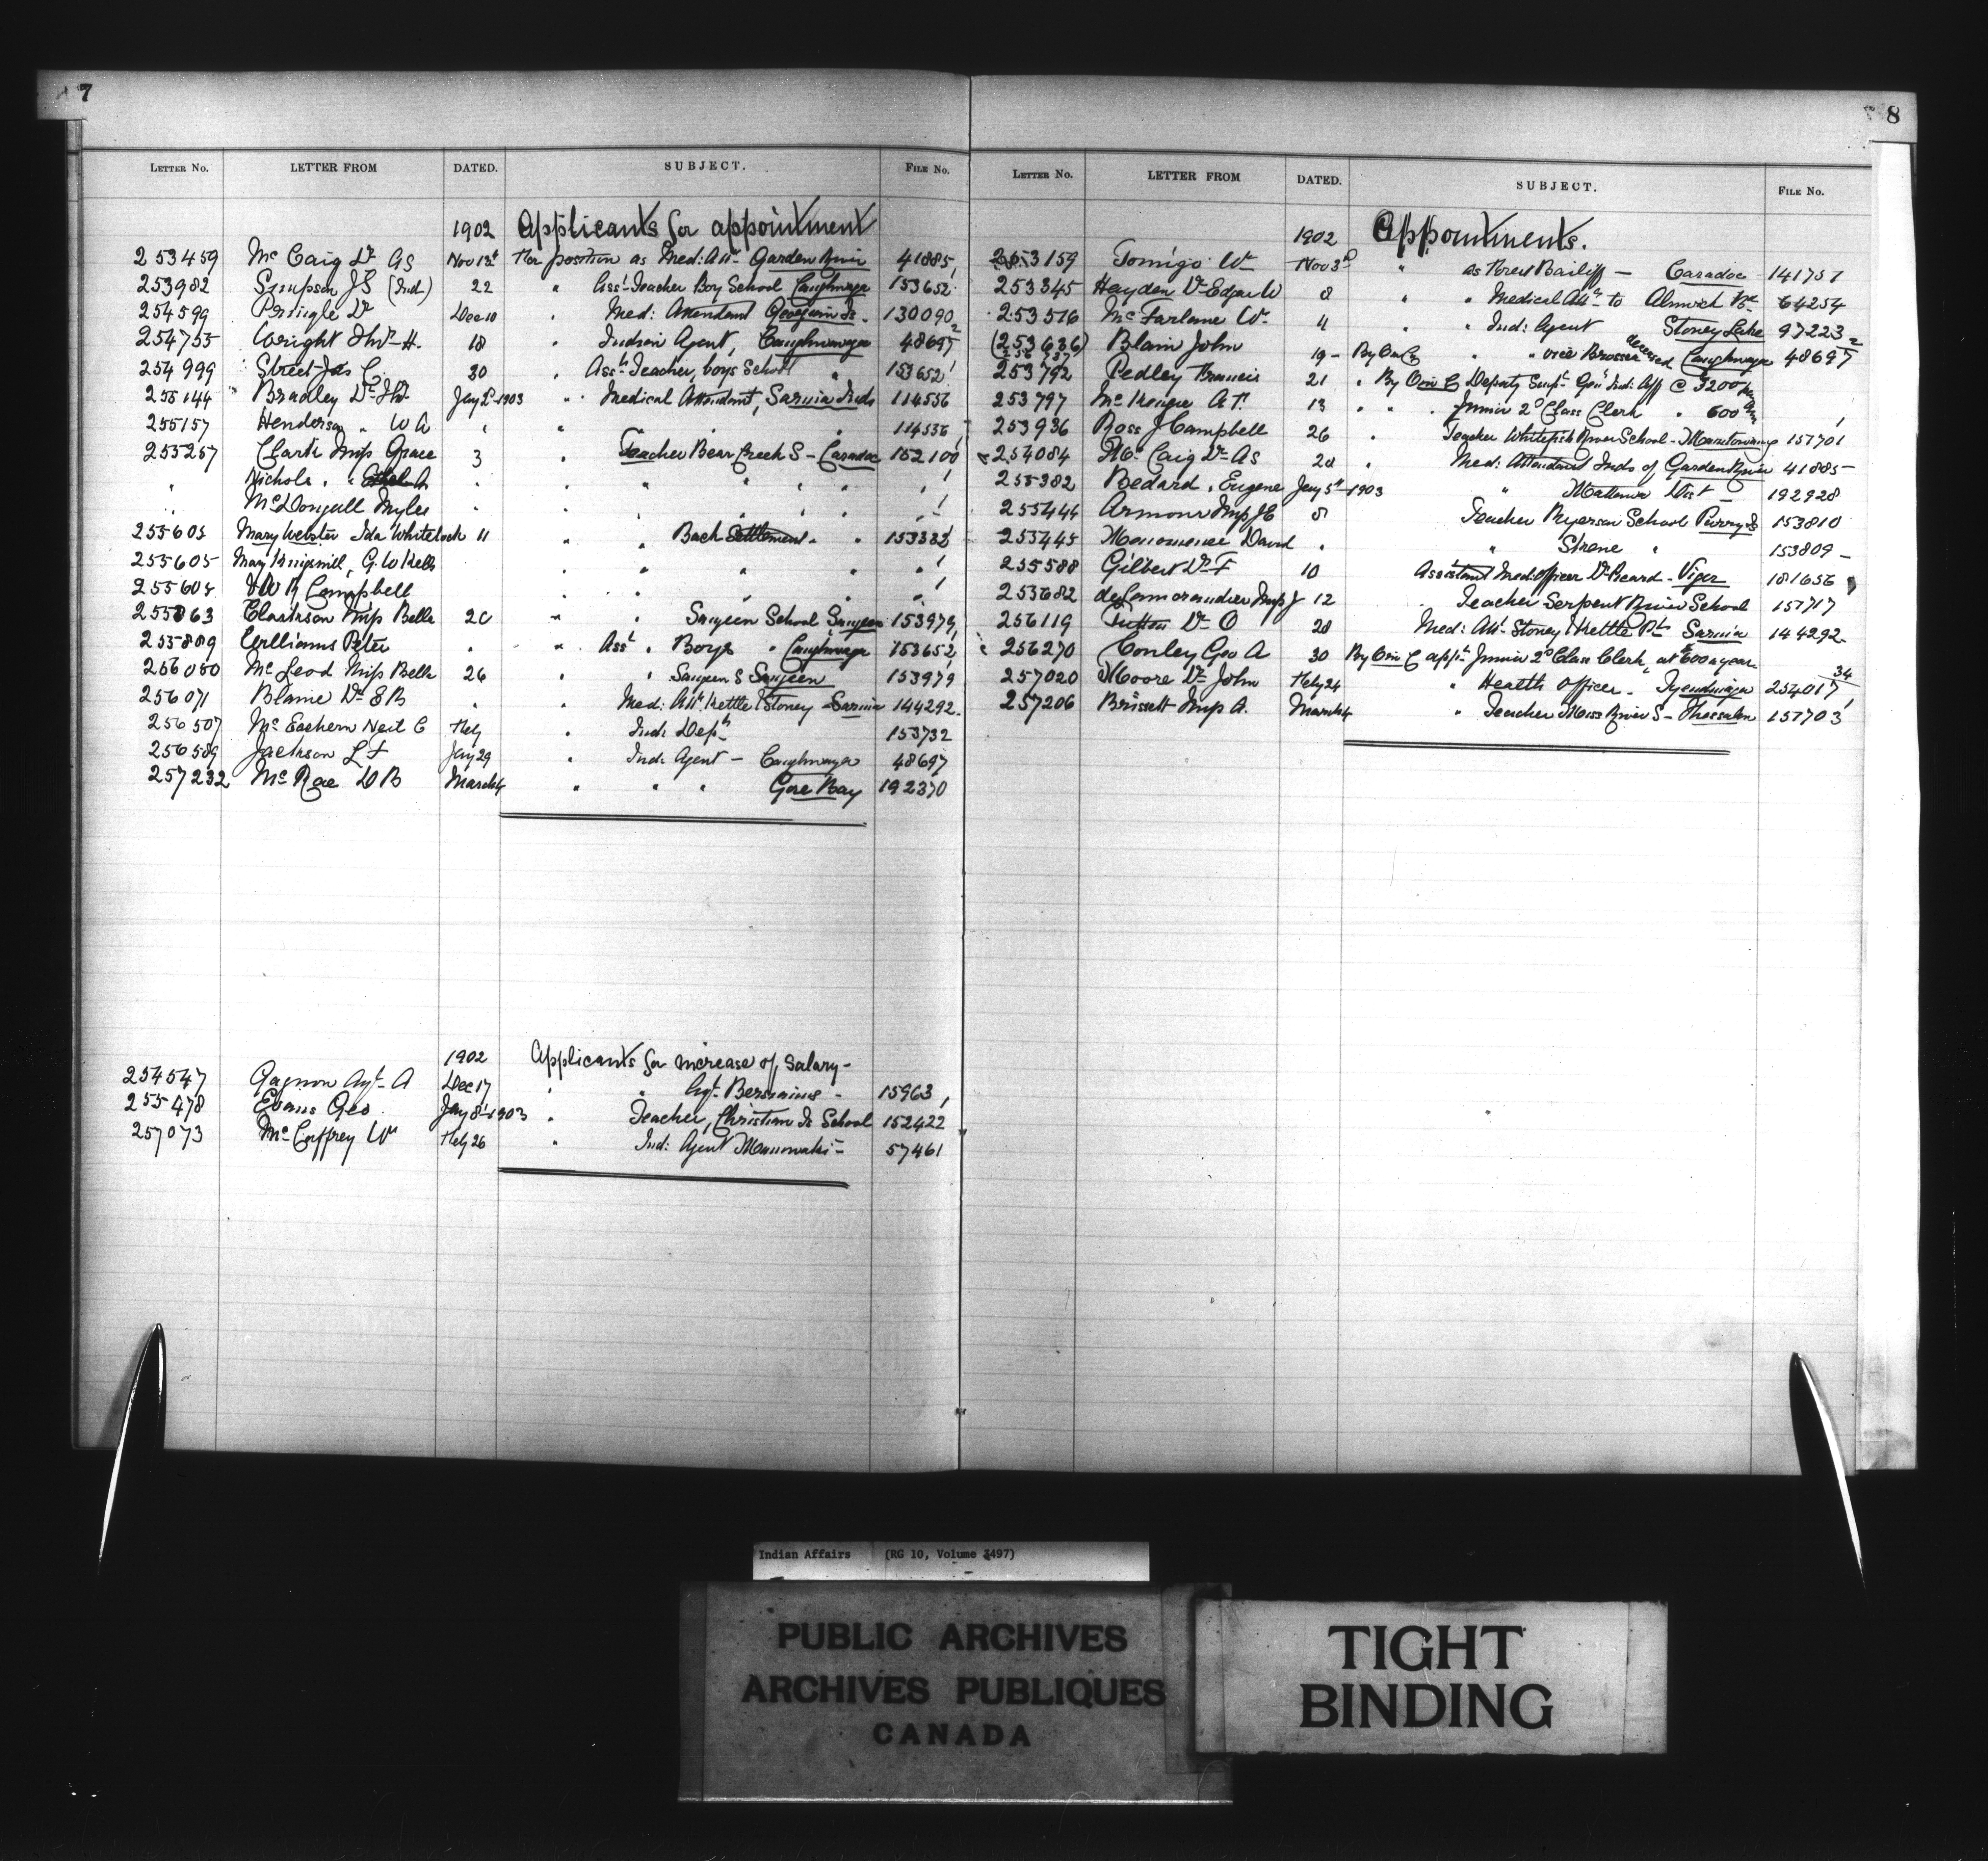 7
LETTER NO. LETTER FROM DATED. SUBJECT. FILE NO.
1902 Applicants for appointment
253459 Mc Caig Dr AS Nov 13th For position as Med: Att- Garden River 41885
253982 Simpson JS (Ind) 22 " Asst Teacher Boy School Caughnawaga 153652
254599 Dr Dec 10 " Med: Attendant Georgina Is. 130090
254755 Wright H. 18 " Indian Agent, Caughnawaga 48697 2
254999 Street Jas C. 30 " Asst Teacher, boys School " 153652
255144 Bradley Dr Jany 2d 1903 " Medical Attendant, Sarnia Inds 114536
255157 Henderson " W A " " " " 114536
255257 Clark Miss Grace 3 " Teacher Bear Creek S - Caradoc 152100
" Nichols " " A " " " " " "
" McDougall Myles " " " " " "
255605 Mary Webster Ida Whitelock 11 " " Back Settlement " " 153332
255605 Mary Kingsmill, G. W Kells " " " " "
255605 Campbell " " " " "
255863 Clarkson Miss Bella 20 " " Saugeen School Saugeen 153979
255889 Williams Peter " " Asst " Boys " Caughnawaga 153652
256050 McLeod Miss Bella 26 " " Saugeen S Saugeen 153979
256071 Blaine Dr E B " " Med: Att. Kettle & Stoney Sarnia 144292
256507 Mc Eachern Neil C Feby " Ind: Dept 153732
256589 Jackson L F Jany 29 " Ind: Agent - Caughnawaga 48697
257232 McRae D B March 4 " " " Gore Bay 192370
1902 Applicants for increase of salary -
254547 Gagnon Agt. A Dec 17 " " Agt. Bersimis - 15963
255478 Evans Geo. Jany 8th 1903 " Teacher, Christian Is School 152422
257073 McCaffrey Wm Feby 26 " Ind: Agent Maniwaki - 57461
8
LETTER NO. LETTER FROM DATED. SUBJECT. FILE NO.
1902 Appointments.
253159 Tomigo Wm Nov 3d " as Forest Bailiff - Caradoc 141757
253345 Hayden Dr Edgar W 8 " " Medical Att. to Alnwick 64254
253516 McFarlane Wm 4 " " Ind: Agent Stoney Lake 97223 2
(253636) Blain John 19 - By O in C " " vice Brosseau deceased Caughnawaga 48697
253792 Pedley Francis 21 " By O in C Deputy Supt. Genl Ind: Aff @ 3200 per Ann
253797 McKenzie A.T. 13 " " " Junior 2d Class Clerk " 600
253936 Ross J Campbell 26 " Teacher Whitefish River School - Manitowaning 151701
254084 Mc Caig Dr AS 20 " Med: Attendant Inds of Garden River 41885 -
255382 Bedard, Eugene Jany 5th 1903 " Mattawa Dist - 192928
255444 Armour Miss 8 Teacher Ryerson School Parry Is 153810
255445 David " " " 153809 -
255588 Gilbert Dr F 10 Assistant Med: Officer Dr Beard - Viger 181656
255682 de Lamorandier Miss J 12 " Teacher Serpent River School 151717
256119 Sutton Dr O 20 Med: Att. Stoney & Kettle Pt. Sarnia 144292
256270 Conley Geo A 30 By O in C appt Junior 2d Class Clerk, at $600 a year
257020 Moore Dr John Feby 24 " Health Officer - Tyendinaga 254017 34
257206 Brissett Miss A. March 4 " Teacher River S - Thessalon 151703
Indian Affairs (RG 10, Volume 3497)
PUBLIC ARCHIVES
ARCHIVES PUBLIQUES
CANADA
TIGHT
BINDING